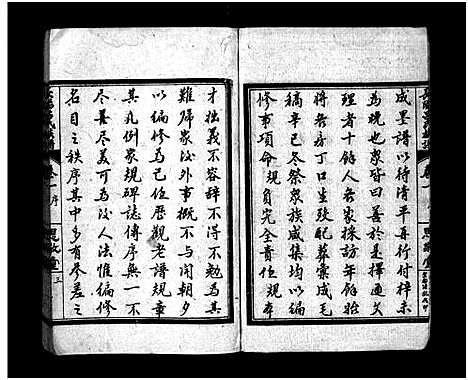 成墨譜以待清平再行付梓未
為晚也眾皆曰善於是擇通文
理者十餘人每家採訪年餘始
將各房丁口生歿配葬彙成毛
稿辛巳冬祭眾族咸集均以編
修事項命規負完全責任規
才拙義不容辭不得不免其
難歸家後外事概不與聞朝夕
以編修為己任歷觀老譜規章
其凡例家規碑誌傳序無一不
盡善盡美可以為法惟編修
名目之秩序其中多有參差之
卷一
序
思敬堂
三
卷一
思敬堂